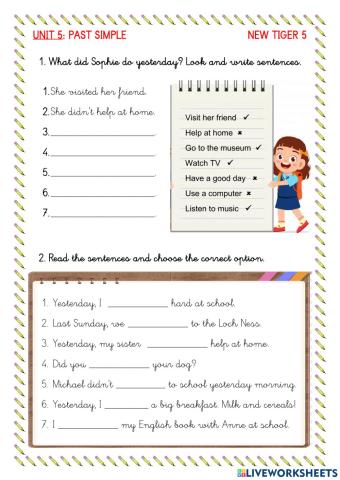 UNIT 5: PAST SIMPLE NEW TIGER 5
1. What did Sophie do yesterday? Look and write sentences.
1.She visited her friend.
2.She didn't help at home.
3.
4.
5.
6.
7.
Visit her friend ✓
Help at home ✖
Go to the museum ✓
Watch TV ✓
Have a good day ✖
Use a computer ✖
Listen to music ✓
2. Read the sentences and choose the correct option.
1. Yesterday, I ____________ hard at school.
2. Last Sunday, we ____________ to the Loch Ness.
3. Yesterday, my sister ____________ help at home.
4. Did you ____________ your dog?
5. Michael didn't __________ to school yesterday morning.
6. Yesterday, I _________ a big breakfast. Milk and cereals!
7. I _________ my English book with Anne at school.
LIVEWORKSHEETS